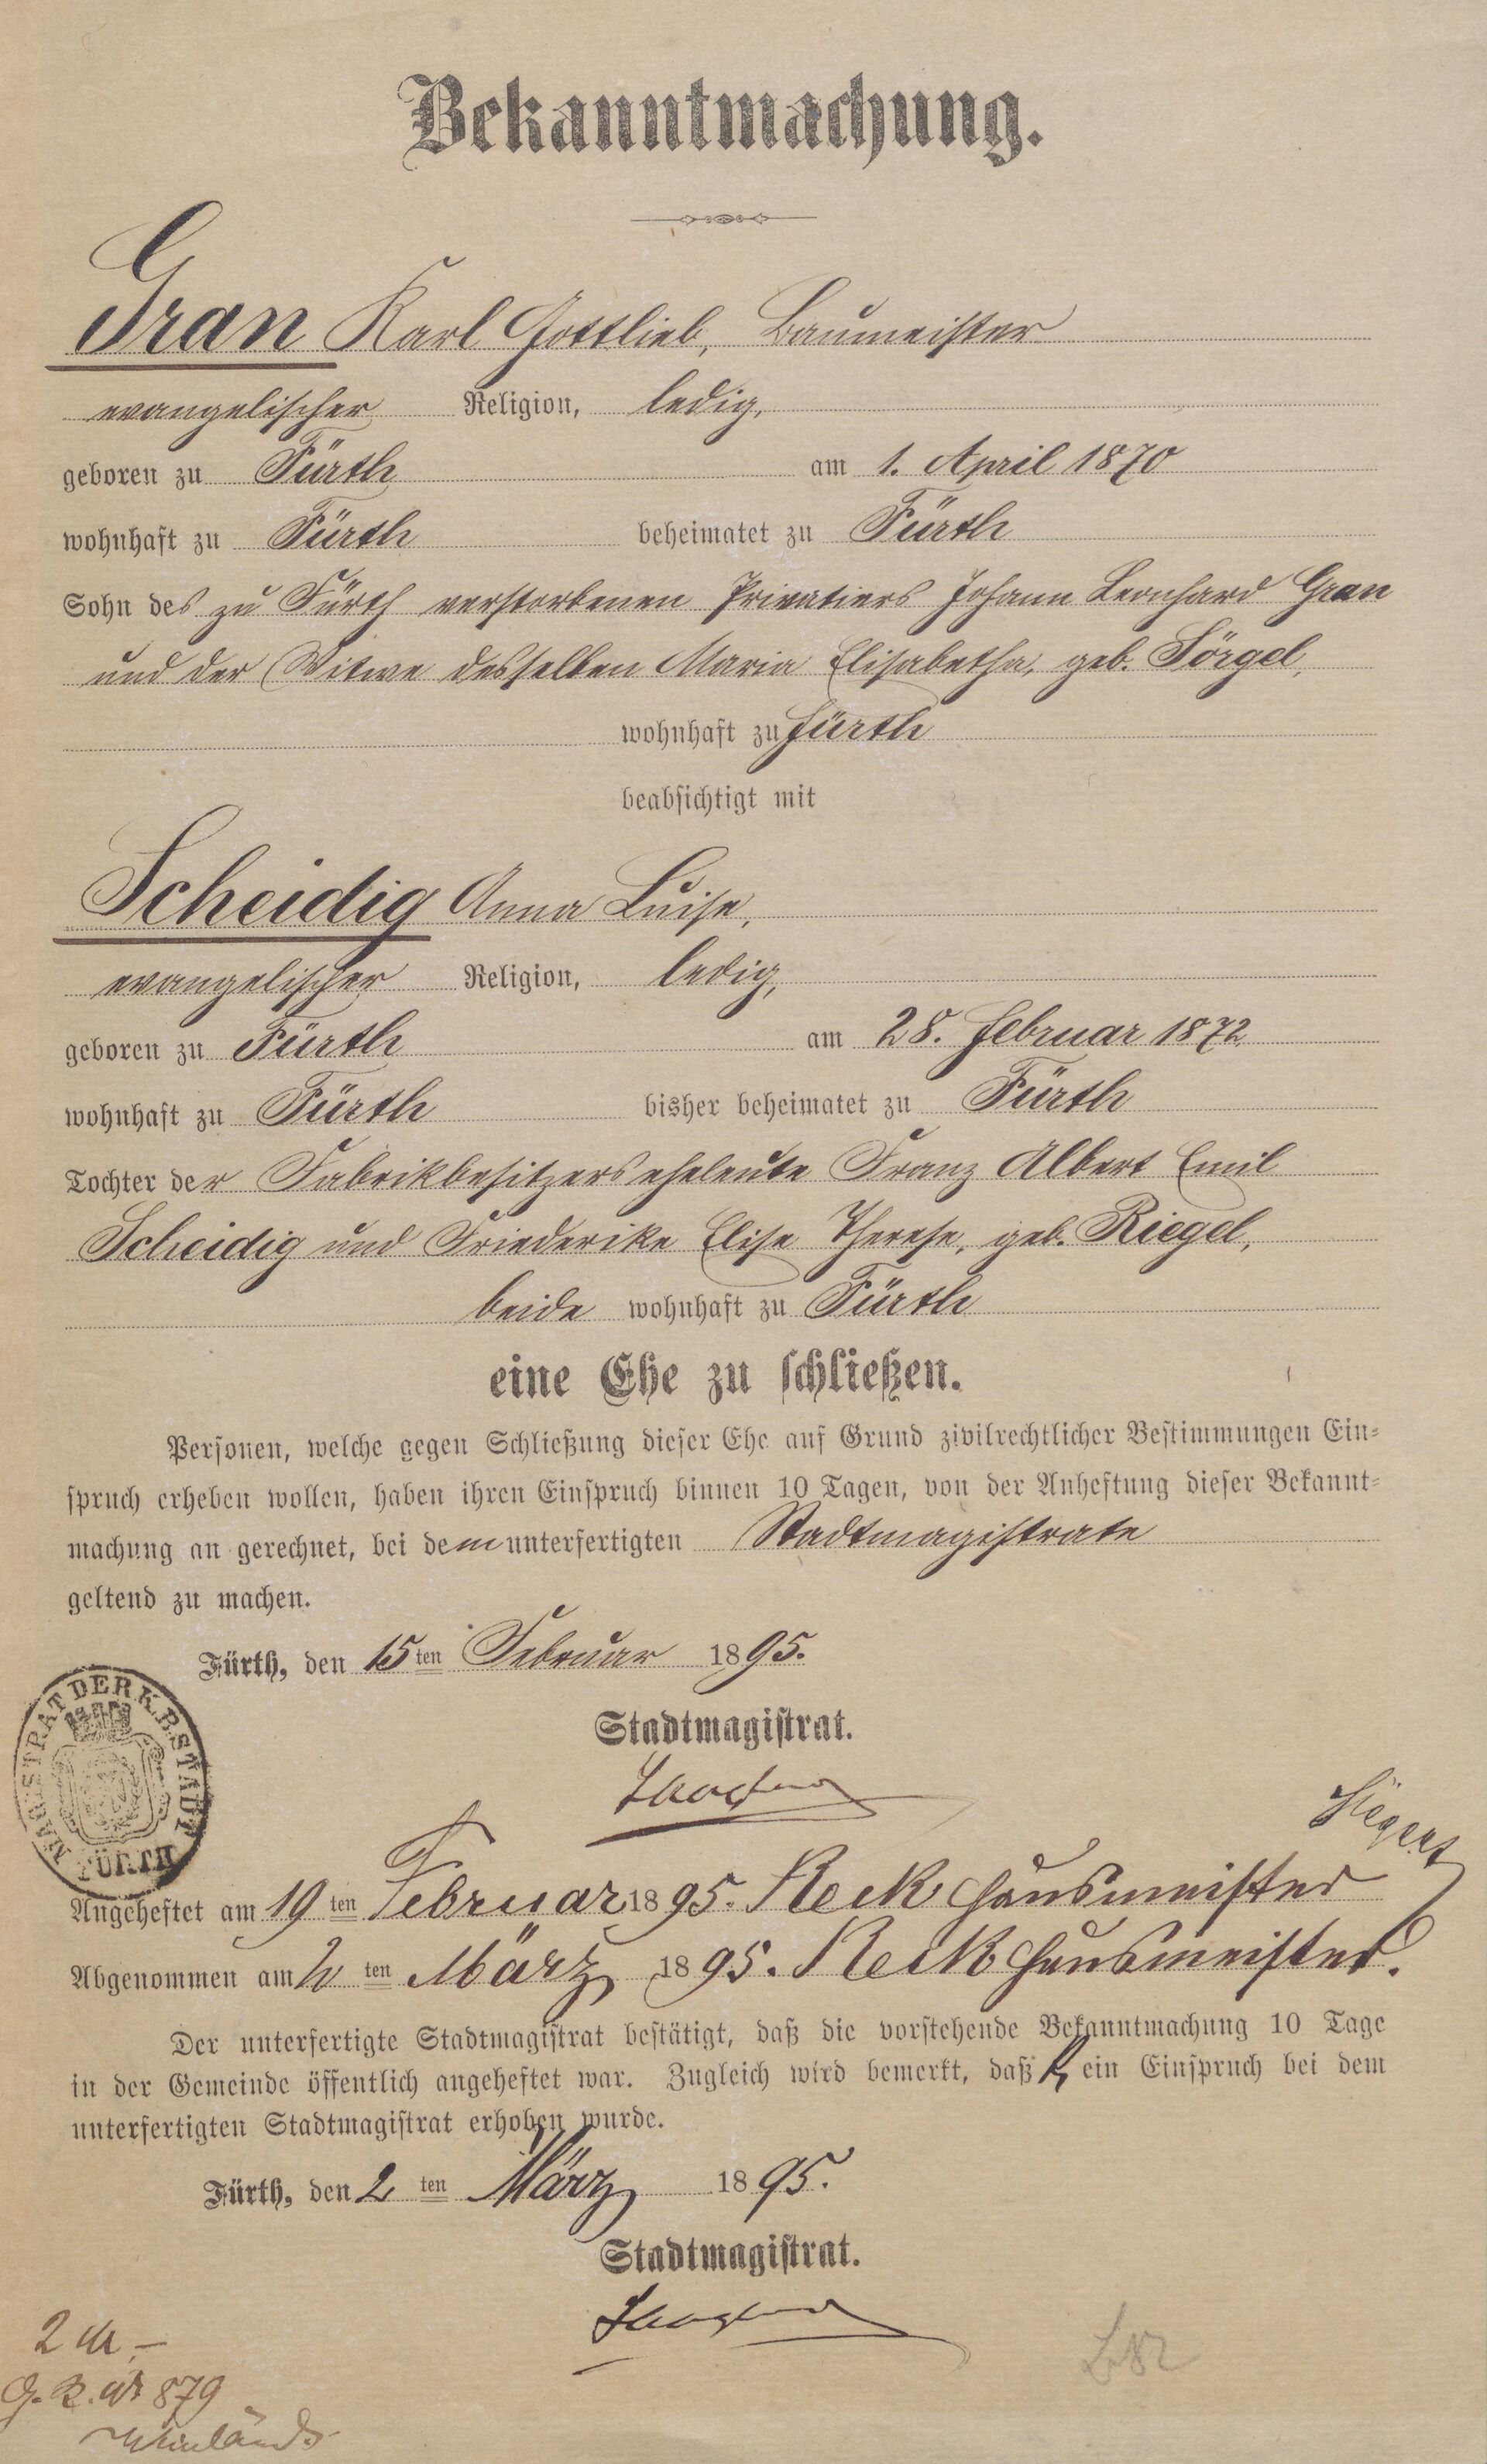 Bekanntmachung.
Gran Karl Gottlieb, Baumeister
evangelischer Religion, ledig,
geboren zu Fürth am 1. April 1870
wohnhaft zu Fürth beheimatet zu Fürth
Sohn des zu Fürth verstorbenen Privatiers Johann Leonhard Gran
und der Witwe desselben Maria Elisabetha, geb. Sörgel,
wohnhaft zu Fürth
beabsichtigt mit
Scheidig Anna Luise,
evangelischer Religion, ledig,
geboren zu Fürth am 28. Februar 1872
wohnhaft zu Fürth bisher beheimatet zu Fürth
Tochter der Fabrikbesitzerseheleute Franz Albert Emil
Scheidig und Friederike Elise Therese, geb. Riegel,
beide wohnhaft zu Fürth
eine Ehe zu schließen.
Personen, welche gegen Schließung dieser Ehe auf Grund zivilrechtlicher Bestimmungen Ein-
spruch erheben wollen, haben ihren Einspruch binnen 10 Tagen, von der Anheftung dieser Bekannt-
machung an gerechnet, bei dem unterfertigten Stadtmagistrate
geltend zu machen.
Fürth, den 15ten Februar 1895.
MAGISTRAT DER K.B. STADT FÜRTH
Stadtmagistrat.
Siegert
Angeheftet am 19ten Februar 1895. Reck Hausmeister
Abgenommen am 2ten März 1895. Reck Hausmeister.
Der unterfertigte Stadtmagistrat bestätigt, daß die vorstehende Bekanntmachung 10 Tage
in der Gemeinde öffentlich angeheftet war. Zugleich wird bemerkt, daß kein Einspruch bei dem
unterfertigten Stadtmagistrat erhoben wurde.
Fürth, den 2ten März 1895.
Stadtmagistrat.
2 M,–
G. R. Nr 879